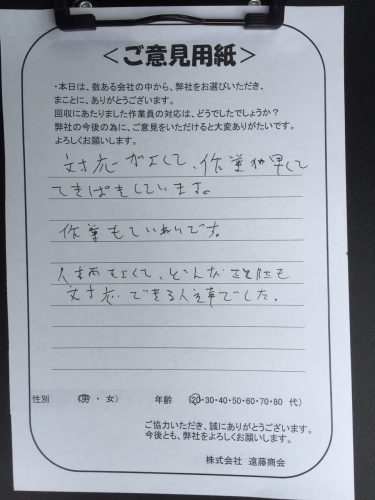 ＜ご意見用紙＞
・本日は、数ある会社の中から、弊社をお選びいただき、
まことに、ありがとうございます。
回収にあたりました作業員の対応は、どうでしたでしょうか？
弊社の今後の為に、ご意見をいただけると大変ありがたいです。
よろしくお願いします。
対応がよくて、作業が早くて
てきぱきしています。
作業もていねいです。
人柄もよくて、どんな
対応できる人でした。
性別 （男 ・ 女） 年齢 （20・30・40・50・60・70・80 代）
ご協力いただき、誠にありがとうございます。
今後とも、弊社をよろしくお願いします。
株式会社 遠藤商会